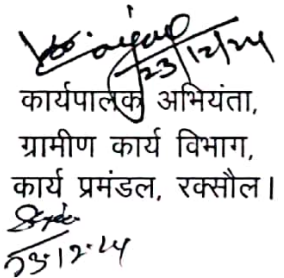 23/12/24
कार्यपालक अभियंता,
ग्रामीण कार्य विभाग,
कार्य प्रमंडल, रक्सौल।
23.12.24